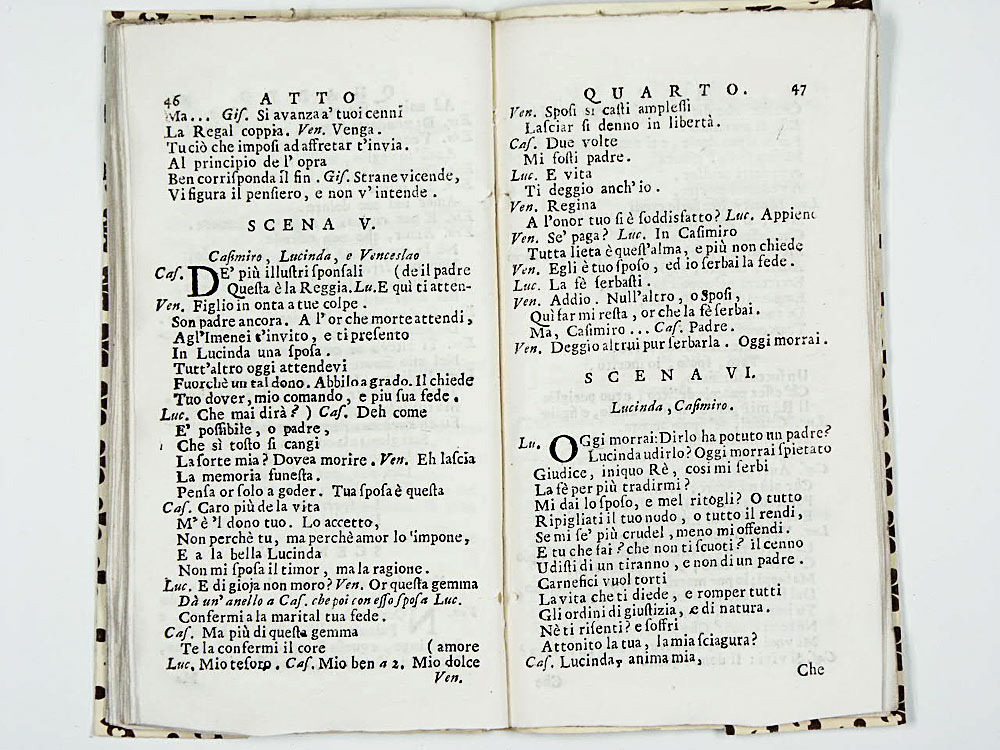 46 ATTO
Ma... Gis. Si avanza a' tuoi cenni
La Regal coppia. Ven. Venga.
Tu ciò che imposi ad affretar t'invia.
Al principio de l' opra
Ben corrisponda il fin. Gis. Strane vicende,
Vi figura il pensiero, e non v'intende.
SCENA V.
Casimiro, Lucinda, e Venceslao
Cas. DE' più illustri sponsali (de il padre
Questa è la Reggia. Lu. E quì ti atten-
Ven. Figlio in onta a tue colpe.
Son padre ancora. A l'or che morte attendi,
Agl'Imenei t'invito, e ti presento
In Lucinda una sposa.
Tutt'altro oggi attendevi
Fuorchè un tal dono. Abbilo a grado. Il chiede
Tuo dover, mio comando, e piu sua fede.
Luc. Che mai dirà? ) Cas. Deh come
E' possibile, o padre,
Che sì tosto si cangi
La sorte mia? Dovea morire. Ven. Eh lascia
La memoria funesta.
Pensa or solo a goder. Tua sposa è questa
Cas. Caro più de la vita
M'è 'l dono tuo. Lo accetto,
Non perchè tu, ma perchè amor lo 'impone,
E a la bella Lucinda
Non mi sposa il timor, ma la ragione.
Luc. E di gioja non moro? Ven. Or questa gemma
Dà un'anello a Cas. che poi con esso sposa Luc.
Confermi a la marital tua fede.
Cas. Ma più di questa gemma
Te la confermi il core (amore
Luc. Mio tesoro. Cas. Mio ben a 2. Mio dolce
Ven.
QUARTO. 47
Ven. Sposi sì casti amplessi
Lasciar si denno in libertà.
Cas. Due volte
Mi fosti padre.
Luc. E vita
Ti deggio anch'io.
Ven. Regina
A l'onor tuo si è soddisfatto? Luc. Appieno
Ven. Se' paga? Luc. In Casimiro
Tutta lieta è quest'alma, e più non chiede
Ven. Egli è tuo sposo, ed io serbai la fede.
Luc. La fè serbasti.
Ven. Addio. Null'altro, o Sposi,
Qui far mi resta, or che la fè serbai.
Ma, Casimiro... Cas. Padre.
Ven. Deggio altrui pur serbarla. Oggi morrai.
SCENA VI.
Lucinda, Casimiro.
Lu. OGgi morrai: Dirlo ha potuto un padre?
Lucinda udirlo? Oggi morrai spietato
Giudice, iniquo Rè, così mi serbi
La fè per più tradirmi?
Mi dai lo sposo, e mel ritogli? O tutto
Ripigliati il tuo nodo, o tutto il rendi,
Se mi se' più crudel, meno mi offendi.
E tu che fai? che non ti scuoti? il cenno
Udisti di un tiranno, e non di un padre.
Carnefici vuol torti
La vita che ti diede, e romper tutti
Gli ordini di giustizia, e di natura.
Nè ti risenti? e soffri
Attonito la tua, la mia sciagura?
Cas. Lucinda, anima mia,
Che